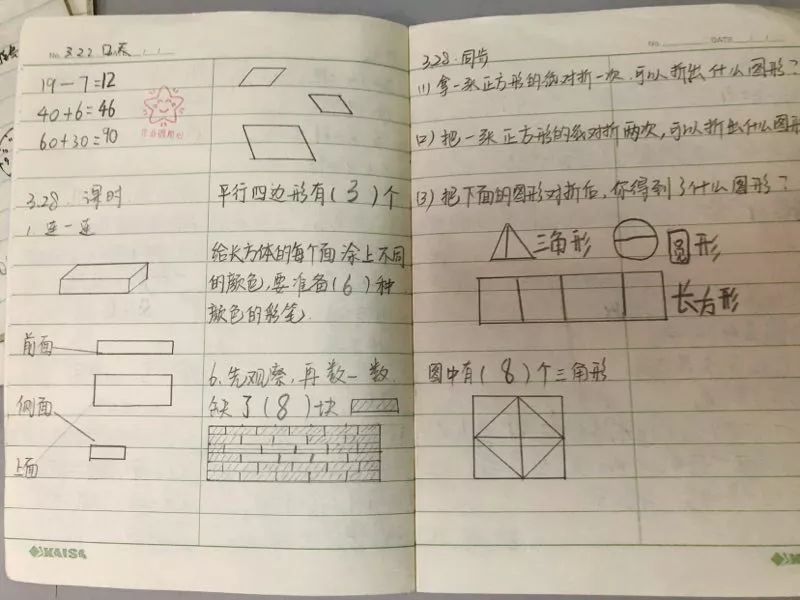 No. 3.22 口天
19－7=12
40+6=46
60+30=90
3.28. 课时
1. 连一连
前面
侧面
上面
KAISA
平行四边形有(3)个
给长方体的每个面涂上不同
的颜色,要准备(6)种
颜色的彩笔.
6.先观察,再数一数.
缺了(8)块
NO. DATE
3.28.同步
(1)拿一张正方形的纸对折一次,可以折出什么图形?
(2)把一张正方形的纸对折两次,可以折出什么图形
(3)把下面的图形对折后,你得到了什么图形?
三角形 圆形
长方形
图中有(8)个三角形